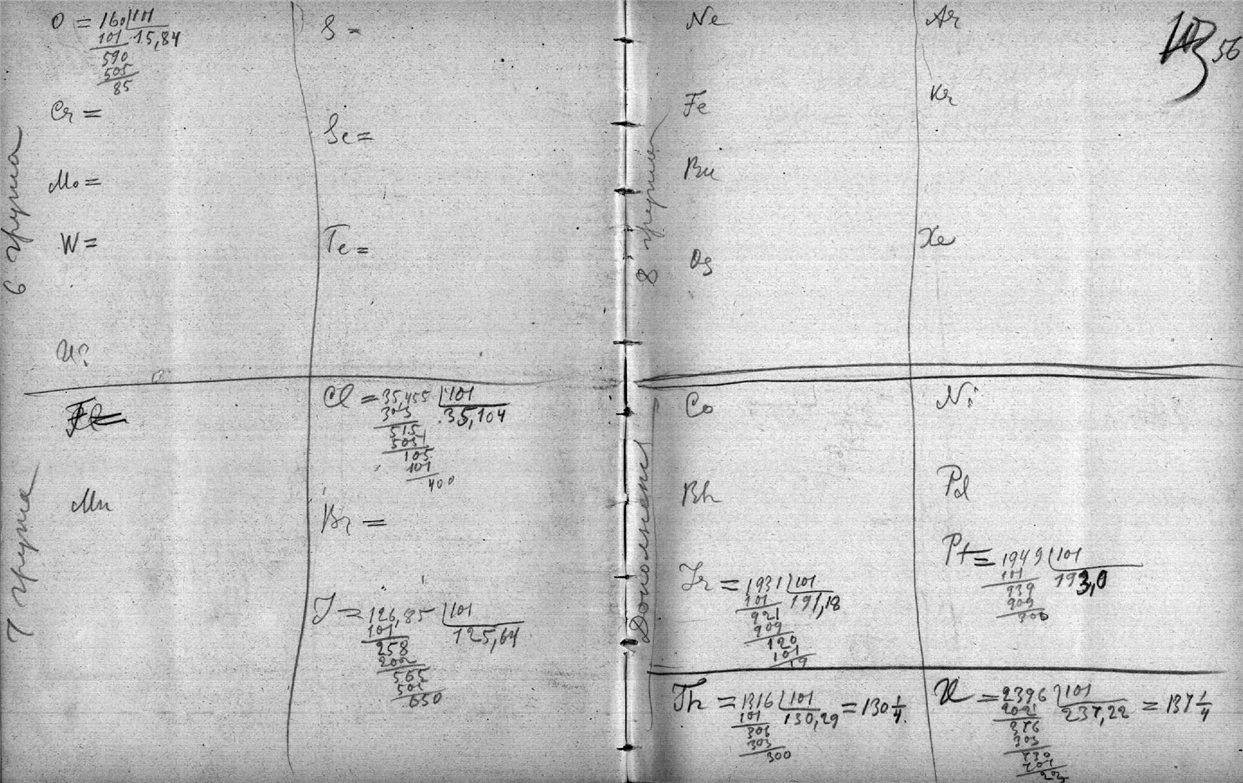 O = 160 | 101
101 15,84
590
505
85
Cr =
Mo =
W =
U?
6 группа
S =
Se =
Te =
7 группа
Mn
Cl = 35,455 | 101
303 35,104
515
505
105
101
400
Br =
J = 126,85 | 101
101 125,64
258
202
565
505
650
56
8 группа
Ne
Fe
Ru
Os
Ar
Kr
Xe
Co
Rh
Jr = 1931 | 101
101 191,18
921
909
120
101
19
Ni
Pd
Pt = 1949 | 101
101 193,0
939
909
300
Th = 1316 | 101
101 130,29 = 130 1/4
306
303
300
U = 2396 | 101
237,22 = 137 1/4
376
303